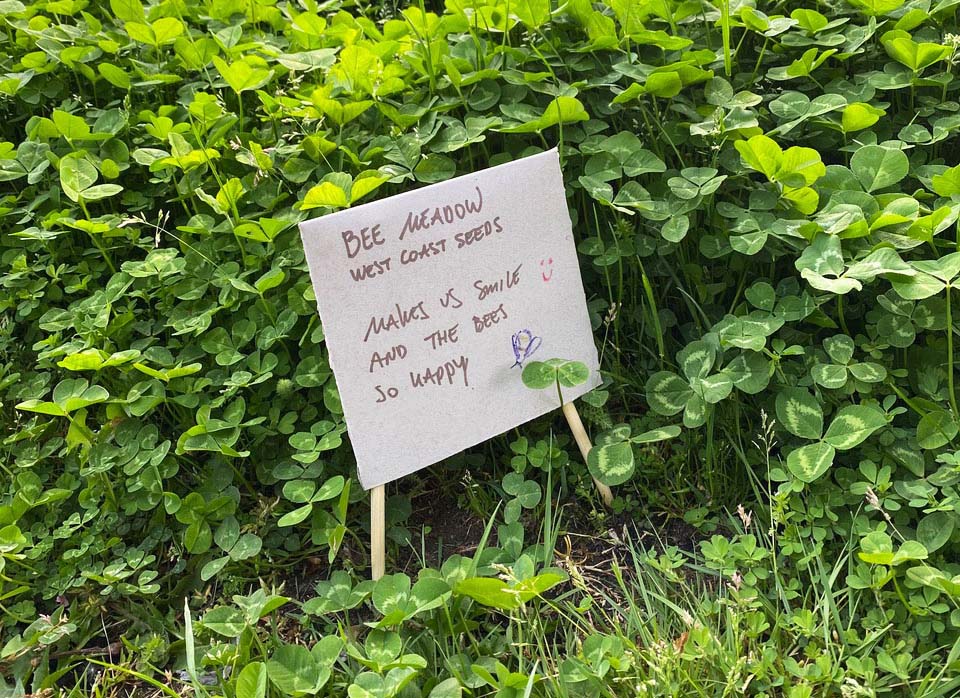 BEE MEADOW
WEST COAST SEEDS
MAKES US SMILE
AND THE BEES
SO HAPPY